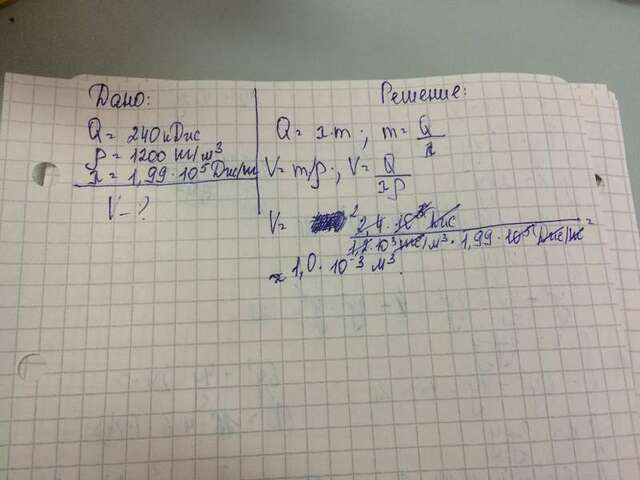 Дано:
Q = 240 кДж
ρ = 1200 кг/м³
λ = 1,99·10⁵ Дж/кг
V - ?
Решение:
Q = λm; m = Q/λ
V = mρ; V = Q/λρ
V = 24·10⁴ Дж / 1,2·10³ кг/м³·1,99·10⁵ Дж/кг =
≈ 1,0·10⁻³ м³